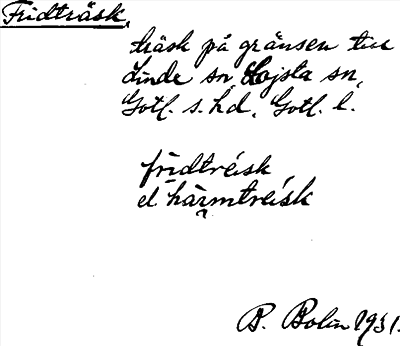 Fridträsk,
träsk på gränsen till
Linde sn, Lojsta sn,
Gotl. s. hd, Gotl. l.
frìdtréisk,
el hàrmtréisk
B. Bolin 1931.